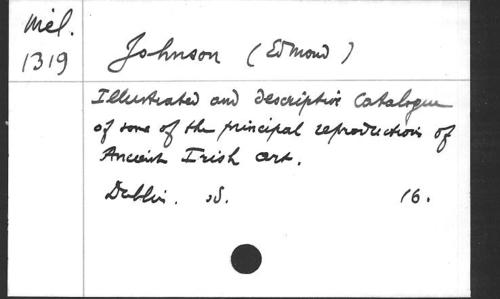 Mél.
1319
Johnson (Edmond)
Illustrated and descriptive Catalogue
of some of the principal reproductions of
Ancient Irish art.
Dublin. sd. 16.